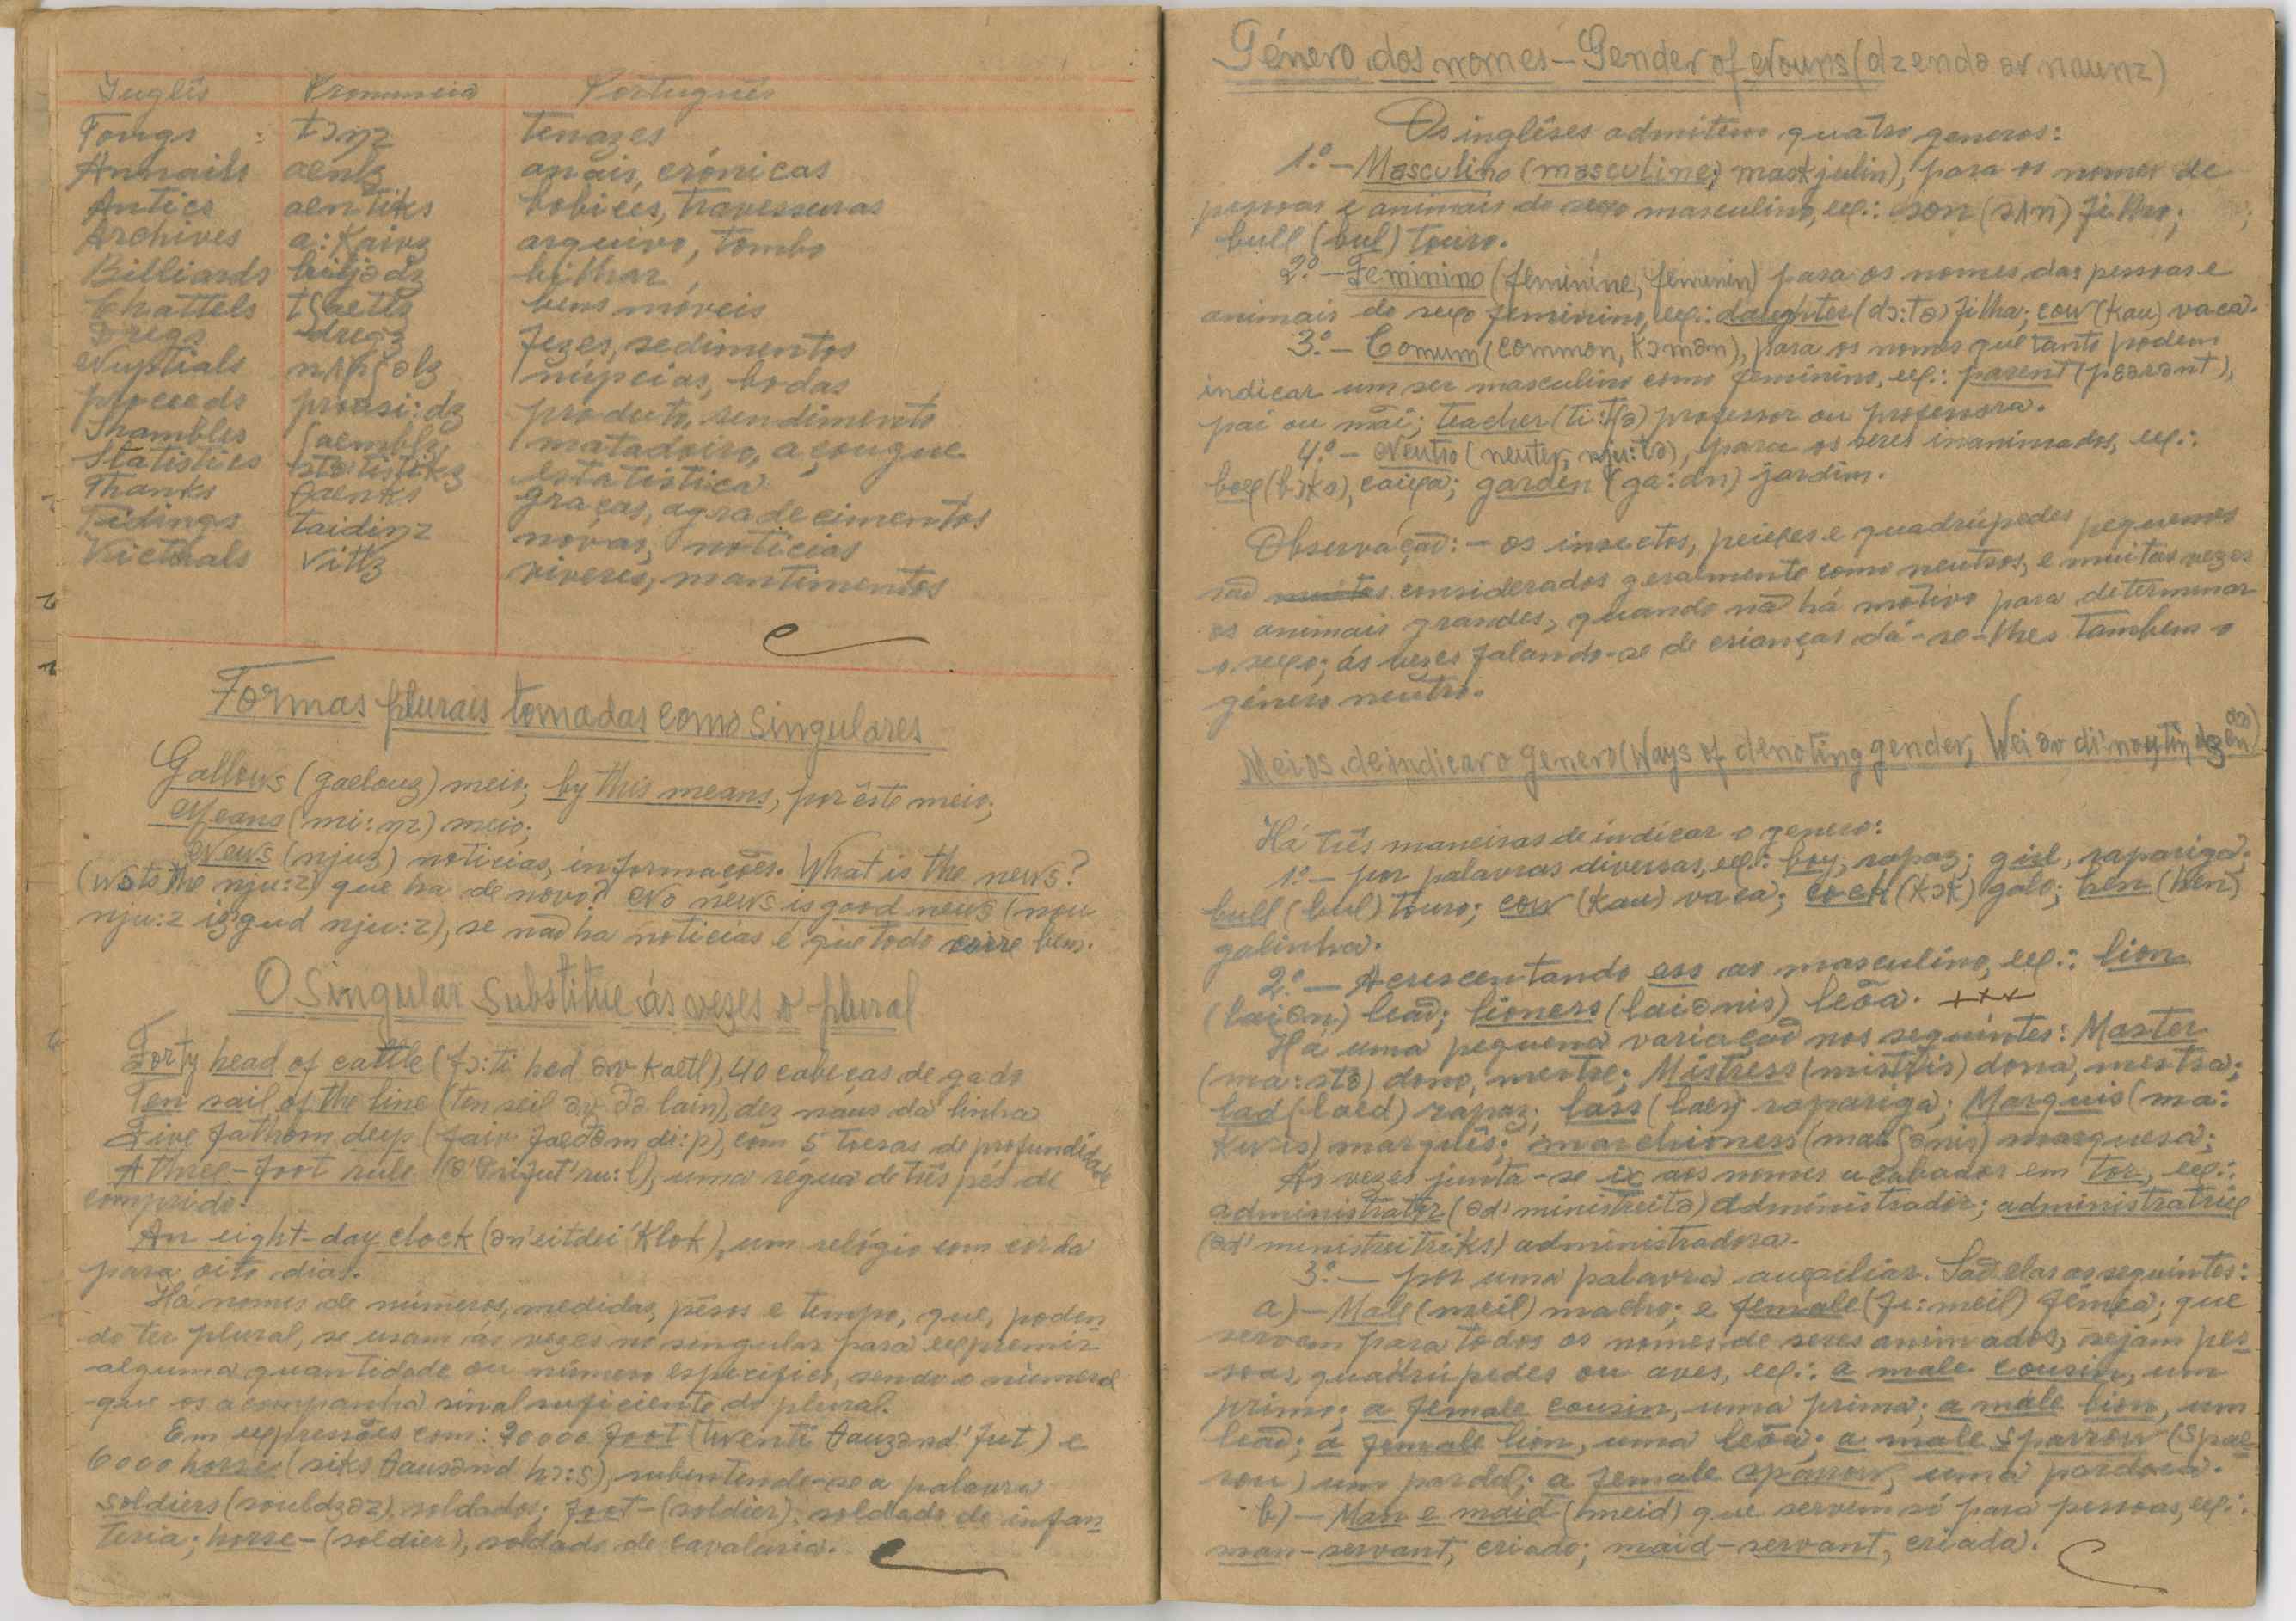 Inglês Pronuncia Português
Tongs tɔŋz tenazes
Annails aenlz anais, crónicas
Antics aentiks bobices, travessuras
Archives a:Kaivz arquivo, tombo
Billiards biljədz bilhar
Chattels tʃaetlz bens móveis
Dregs dregz fezes, sedimentos
Nuptials nʌpʃəlz núpcias, bodas
proceeds prousi:dz produto, rendimento
Shambles ʃaemblz matadoiro, açougue
Statistics estatistica
Thanks θaenks graças, agradecimentos
Tidings taidiŋz novas, noticias
Victuals vitlz viveres, mantimentos
Formas plurais tomadas como singulares
Gallows (gaelouz) meio; by this means, por êste meio;
Means (mi:nz) meio;
News (njuz) noticias, informações. What is the news?
(wots the nju:z) que ha de novo? No news is good news (nou
nju:z iz gud nju:z), se não ha noticias é que todo corre bem.
O Singular substitue ás vezes o plural
Forty head of cattle (fɔ:ti hed əv kaetl), 40 cabeças de gado
Ten sail of the line (ten seil əv ðə lain), dez náus da linha
Five fathom deep (faiv faeðəm di:p), com 5 toesas de profundidade
A three-foot rule (ə'θrifut'ru:l), uma régua de três pés de
comprido.
An eight-day clock (ən'eitdei'klok), um relógio com corda
para oito dias.
Há nomes de números, medidas, pêsos e tempo, que, poden
do ter plural, se usam ás vezes no singular para exprimir
alguma quantidade ou número especifico, sendo o numeral
que os acompanha sinal suficiente do plural.
Em expressões com: 20000 foot (twenti θauzənd'fut) e
6000 horse (siks θausənd hɔ:s), subentende-se a palavra
soldiers (souldʒəz), soldados; foot-(soldier), soldado de infan
teria; horse-(soldier), soldado de cavalaria.
Género dos nomes - Gender of Nouns (dzendə əv naunz)
Os inglêses admitem quatro generos:
1.º - Masculino (masculine; maskjulin), para os nomes de
pessoas e animais do sexo masculino, ex.: son (sʌn) filho;
bull (bul) touro.
2.º - Feminino (feminine, feminin) para os nomes das pessoas e
animais do sexo feminino, ex.: daughter (dɔ:tə) filha; cow (kau) vaca.
3.º - Comum (common, kɔmən), para os nomes que tanto podem
indicar um ser masculino como feminino, ex.: parent (pɛərənt),
pai ou mãi; teacher (ti:tʃə) professor ou professora.
4.º - Neutro (neuter, nju:tə), para os seres inanimados, ex.:
box (bɔks), caixa; garden (ga:dn) jardim.
Observação: - os insectos, peixes e quadrúpedes pequenos
são considerados geralmente como neutros, e muitas vezes
os animais grandes, quando não há motivo para determinar
o sexo; ás vezes falando-se de crianças dá-se-lhes tambem o
género neutro.
Meios de indicar o genero (Ways of denoting gender, Wei əv di'noytiŋ dʒendə)
Há três maneiras de indicar o genero:
1.º - por palavras diversas, ex.: boy, rapaz; girl, rapariga;
bull (bul) touro; cow (kau) vaca; cock (kɔk) galo; hen (hen)
galinha.
2.º - Acrescentando ess ao masculino, ex.: lion
(laiən) leão; lioness (laiənis) leôa. +++
Há uma pequena variação nos seguintes: Master
(ma:stə) dono, mestre; Mistress (mistris) dona, mestra;
lad (laed) rapaz; lass (laes) rapariga; Marquis (ma:
kwis) marquês; marchioness (maʃənis) marquesa;
Ás vezes junta-se ix aos nomes acabados em tor, ex.:
administrator (əd'ministreitə) administrador; administratrix
(əd'ministreitriks) administradora.
3.º - por uma palavra auxiliar. São elas as seguintes:
a) - Male (meil) macho; e female (fi:meil) fémea; que
servem para todos os nomes de seres animados, sejam pes
soas, quadrúpedes ou aves, ex.: a male cousin, um
primo; a female cousin, uma prima; a male lion, um
leão; a female lion, uma leôa; a male sparrow (spae
rou) um pardal; a female sparrow, uma pardoca.
b) - Man e maid (meid) que servem só para pessoas, ex.:
man-servant, criado; maid-servant, criada.